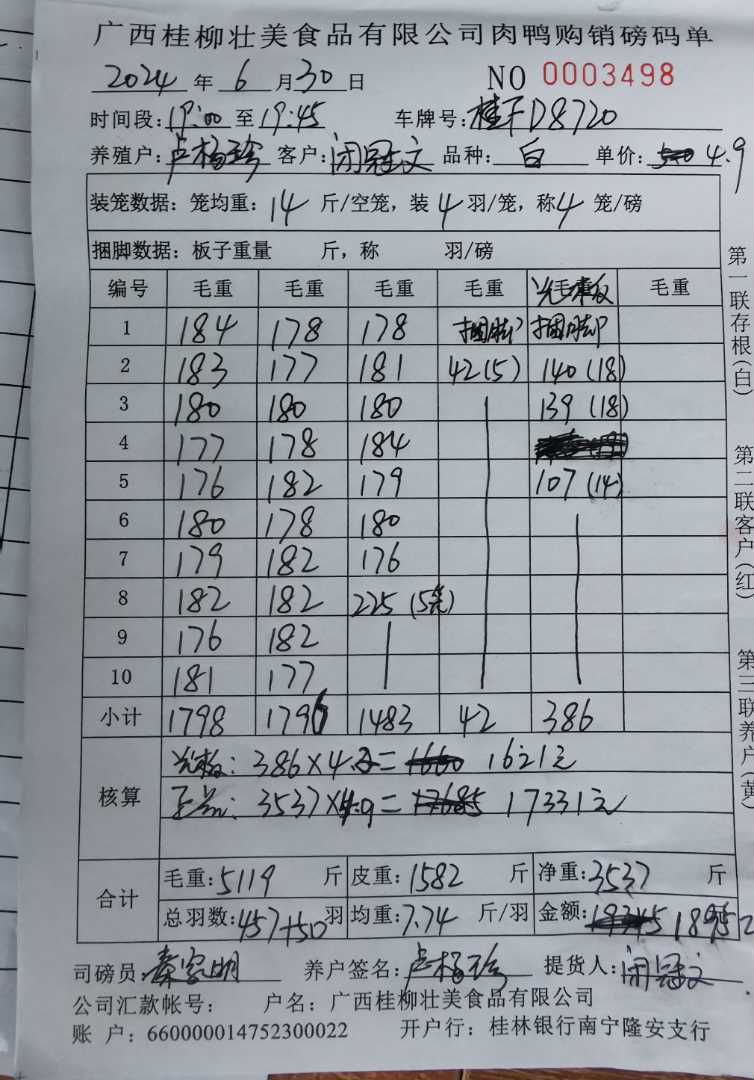 广西桂柳壮美食品有限公司肉鸭购销磅码单
2024 年 6 月 30 日 NO 0003498
时间段: 19:00 至 19:45 车牌号: 桂FD8720
养殖户: 卢杨珍 客户: 闭冠文 品种: 白 单价: 4.9
装笼数据: 笼均重: 14 斤/空笼, 装 4 羽/笼, 称 4 笼/磅
捆脚数据: 板子重量 斤, 称 羽/磅
编号 毛重 毛重 毛重 毛重 光板 毛重
1 184 178 178 捆脚 捆脚
2 183 177 181 42(5) 140(18)
3 180 180 180 139(18)
4 177 178 184
5 176 182 179 107(14)
6 180 178 180
7 179 182 176
8 182 182 225(5笼)
9 176 182
10 181 177
小计 1798 1796 1483 42 386
核算
光板: 386×4.2= 1621元
正品: 3537×4.9= 17331元
合计
毛重: 5119 斤 皮重: 1582 斤 净重: 3537 斤
总羽数: 457+50 羽 均重: 7.74 斤/羽 金额: 18952
司磅员: 秦家明 养户签名: 卢杨珍 提货人: 闭冠文
公司汇款帐号: 户名: 广西桂柳壮美食品有限公司
账 户: 660000014752300022 开户行: 桂林银行南宁隆安支行
第一联存根(白)
第二联客户(红)
第三联养户(黄)